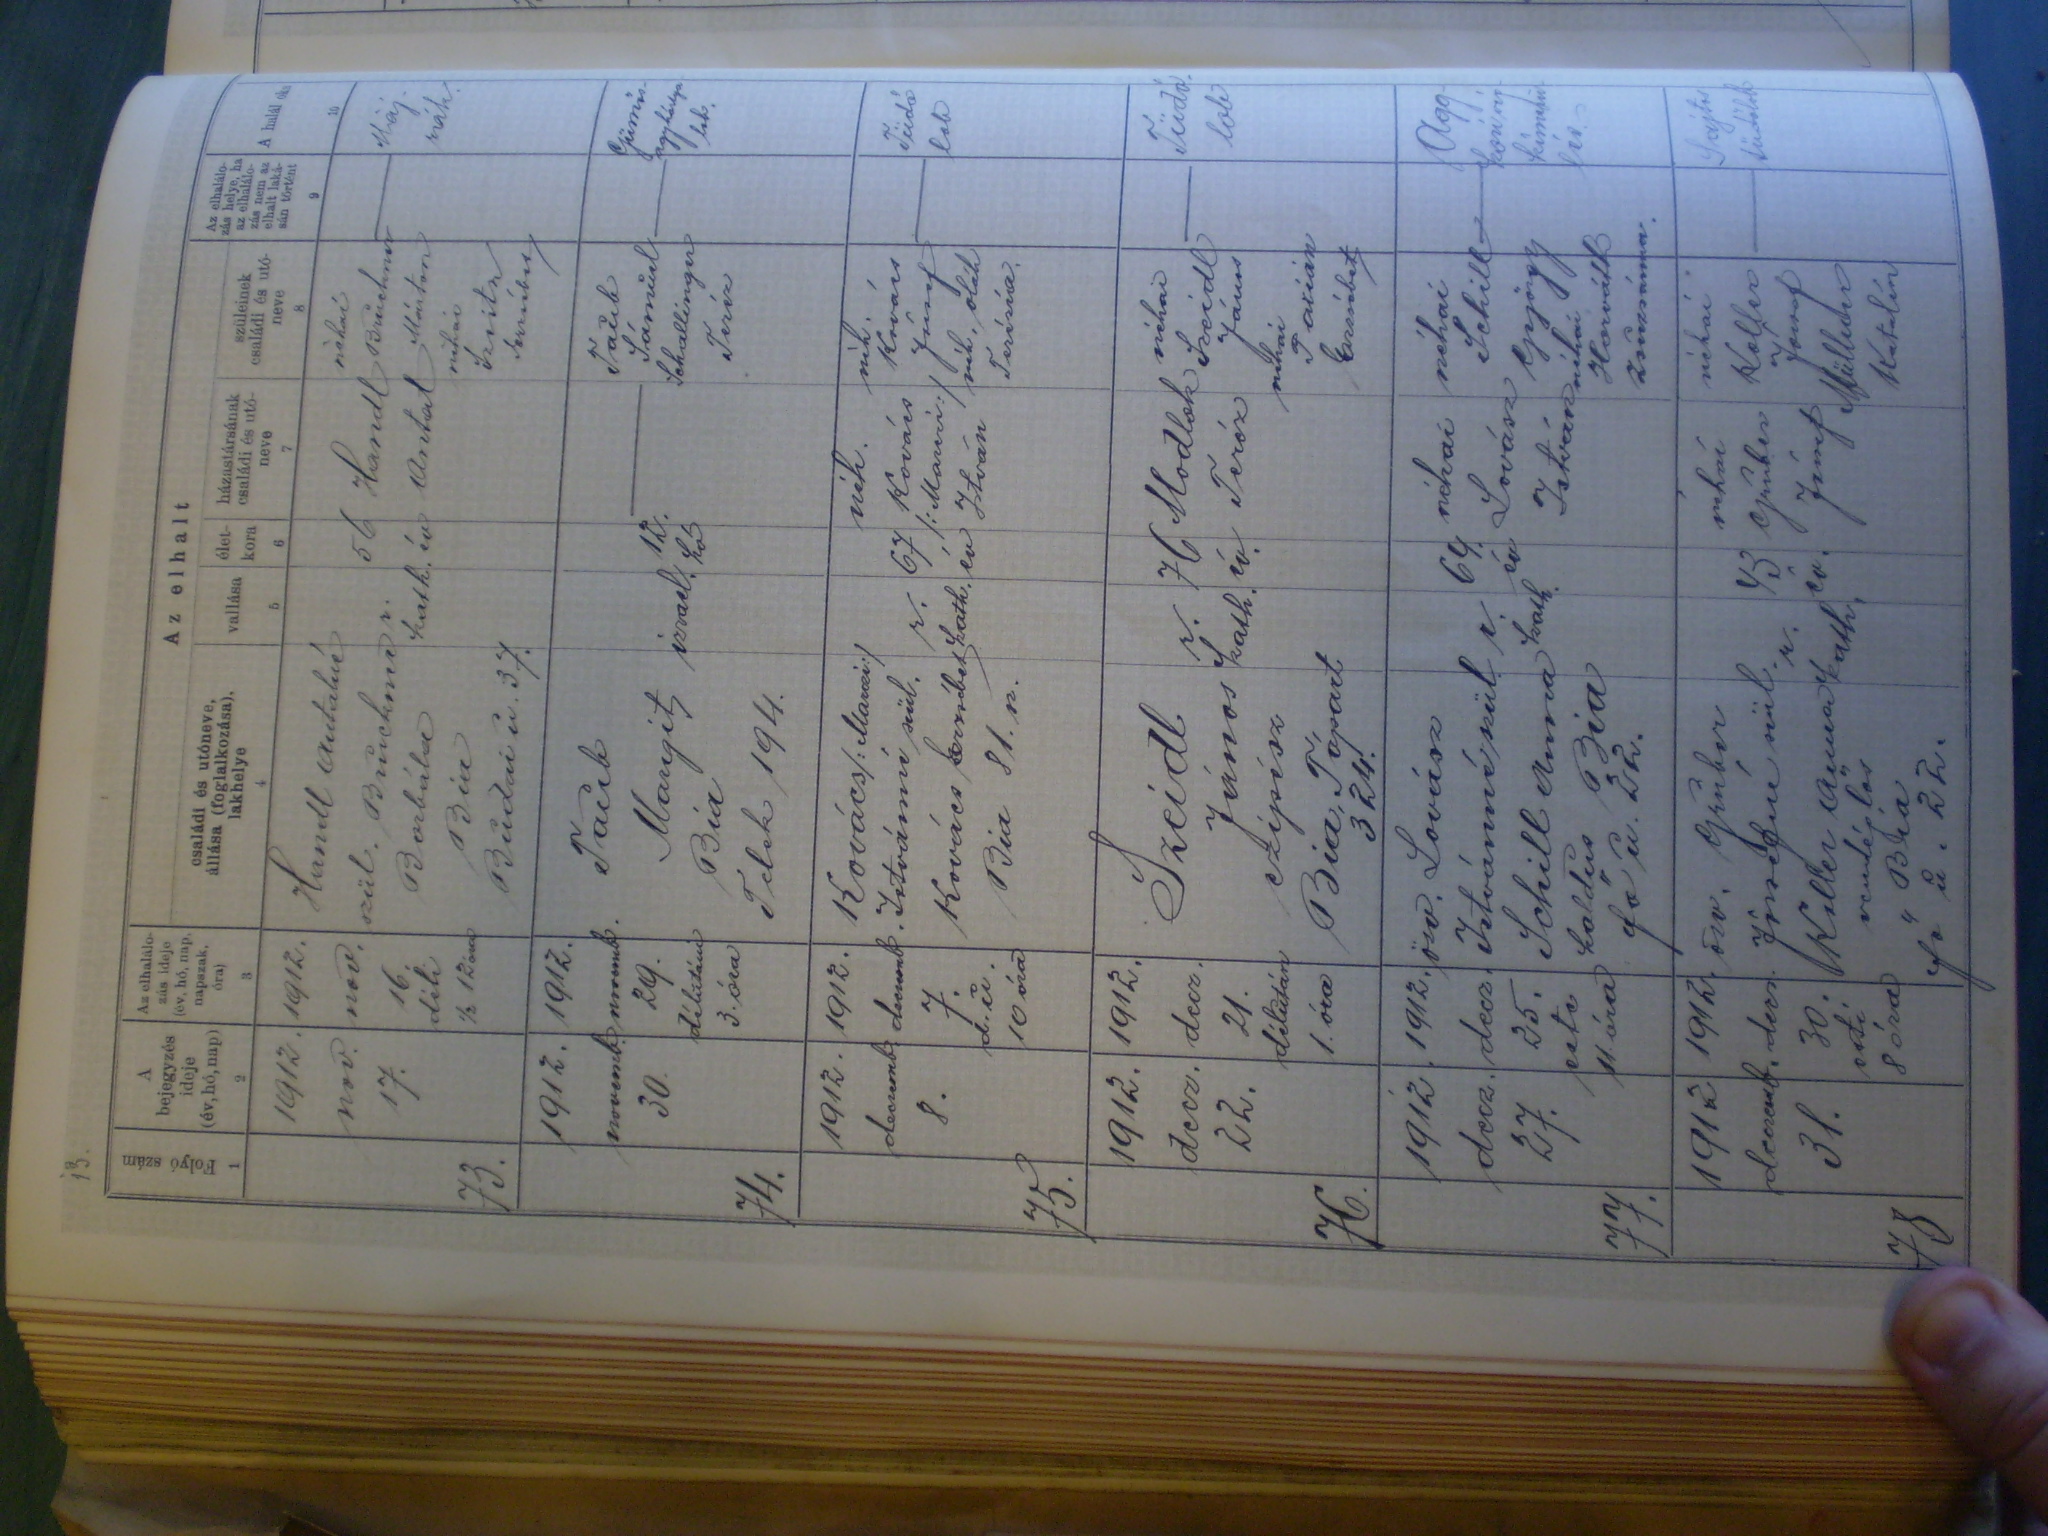 13.
Az elhalt
Folyó szám
A bejegyzés ideje (év, hó, nap)
Az elhaláló-
zás ideje
(év, hó, nap,
napszak,
óra)
családi és utóneve,
állása (foglalkozása),
lakhelye
vallása
élet-
kora
házastársának
családi és utó-
neve
szüleinek
családi és utó-
neve
Az elhaláló-
zás helye, ha
az elhaláló-
zás nem az
elhalt laká-
sán történt
A halál oka
1 2 3 4 5 6 7 8 9 10
73.
1912.
nov.
17.
1912.
nov.
16.
déli
½ 12 óra
Handl Antalné
szül. Bruckner
Borbála
Bia
Budai u. 37.
r.
kath.
56
év
Handl
Antal
néhai
Bruckner
Márton
néhai
Szitz
Máj-
rák.
74.
1912.
novemb.
30.
1912.
novemb.
29.
délutáni
3. óra
Taub
Margit
Bia
Telek 194.
izrael.
12.
hó
Taub
Sámuel
Schallinger
Teréz
Gümős
agyhártya
lob.
75.
1912.
decemb.
8.
1912.
decemb.
7.
d. u.
10 óra
Kovács /:Marczi:/
Istvánné szül.
Kovács Erzsébet
Bia 81. n.
r.
kath.
67
év
néh.
Kovács
/:Marczi:/
István
néh.
Kovács
József
néh. Oláh
Terézia.
Tüdő
lob
76.
1912.
decz.
22.
1912.
decz.
21.
délután
1. óra
Szeidl
János
czipész
Bia, Tópart
324.
r.
kath.
76
év.
Modlok
Teréz
néhai
Szeidl
János
néhai
Erzsébet
Tüdő.
lob
77.
1912.
decz.
27.
1912.
decz.
25.
esti
11. óra
özv. Lovász
Istvánné szül.
Schill Anna
koldus Bia
fő u. 22.
r.
kath.
69.
év
néhai
Lovász
István
néhai
Schill
György
néhai
Horváth
Zsuzsánna.
Agg-
kori
kimerü-
lés.
78
1912
decemb.
31.
1912.
decz.
30.
esti
8 óra
özv. Gruber
Józsefné szül.
Koller Anna
vendéglős
Bia
fő u. 22.
r.
kath,
73
év.
néhai
Gruber
József
néhai
Koller
József
Müller
Katalin
Sajtos
tüdőlob